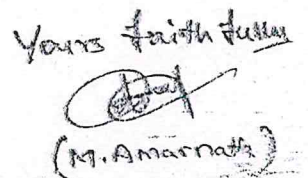 Yours faithfully
(M. Amarnath)